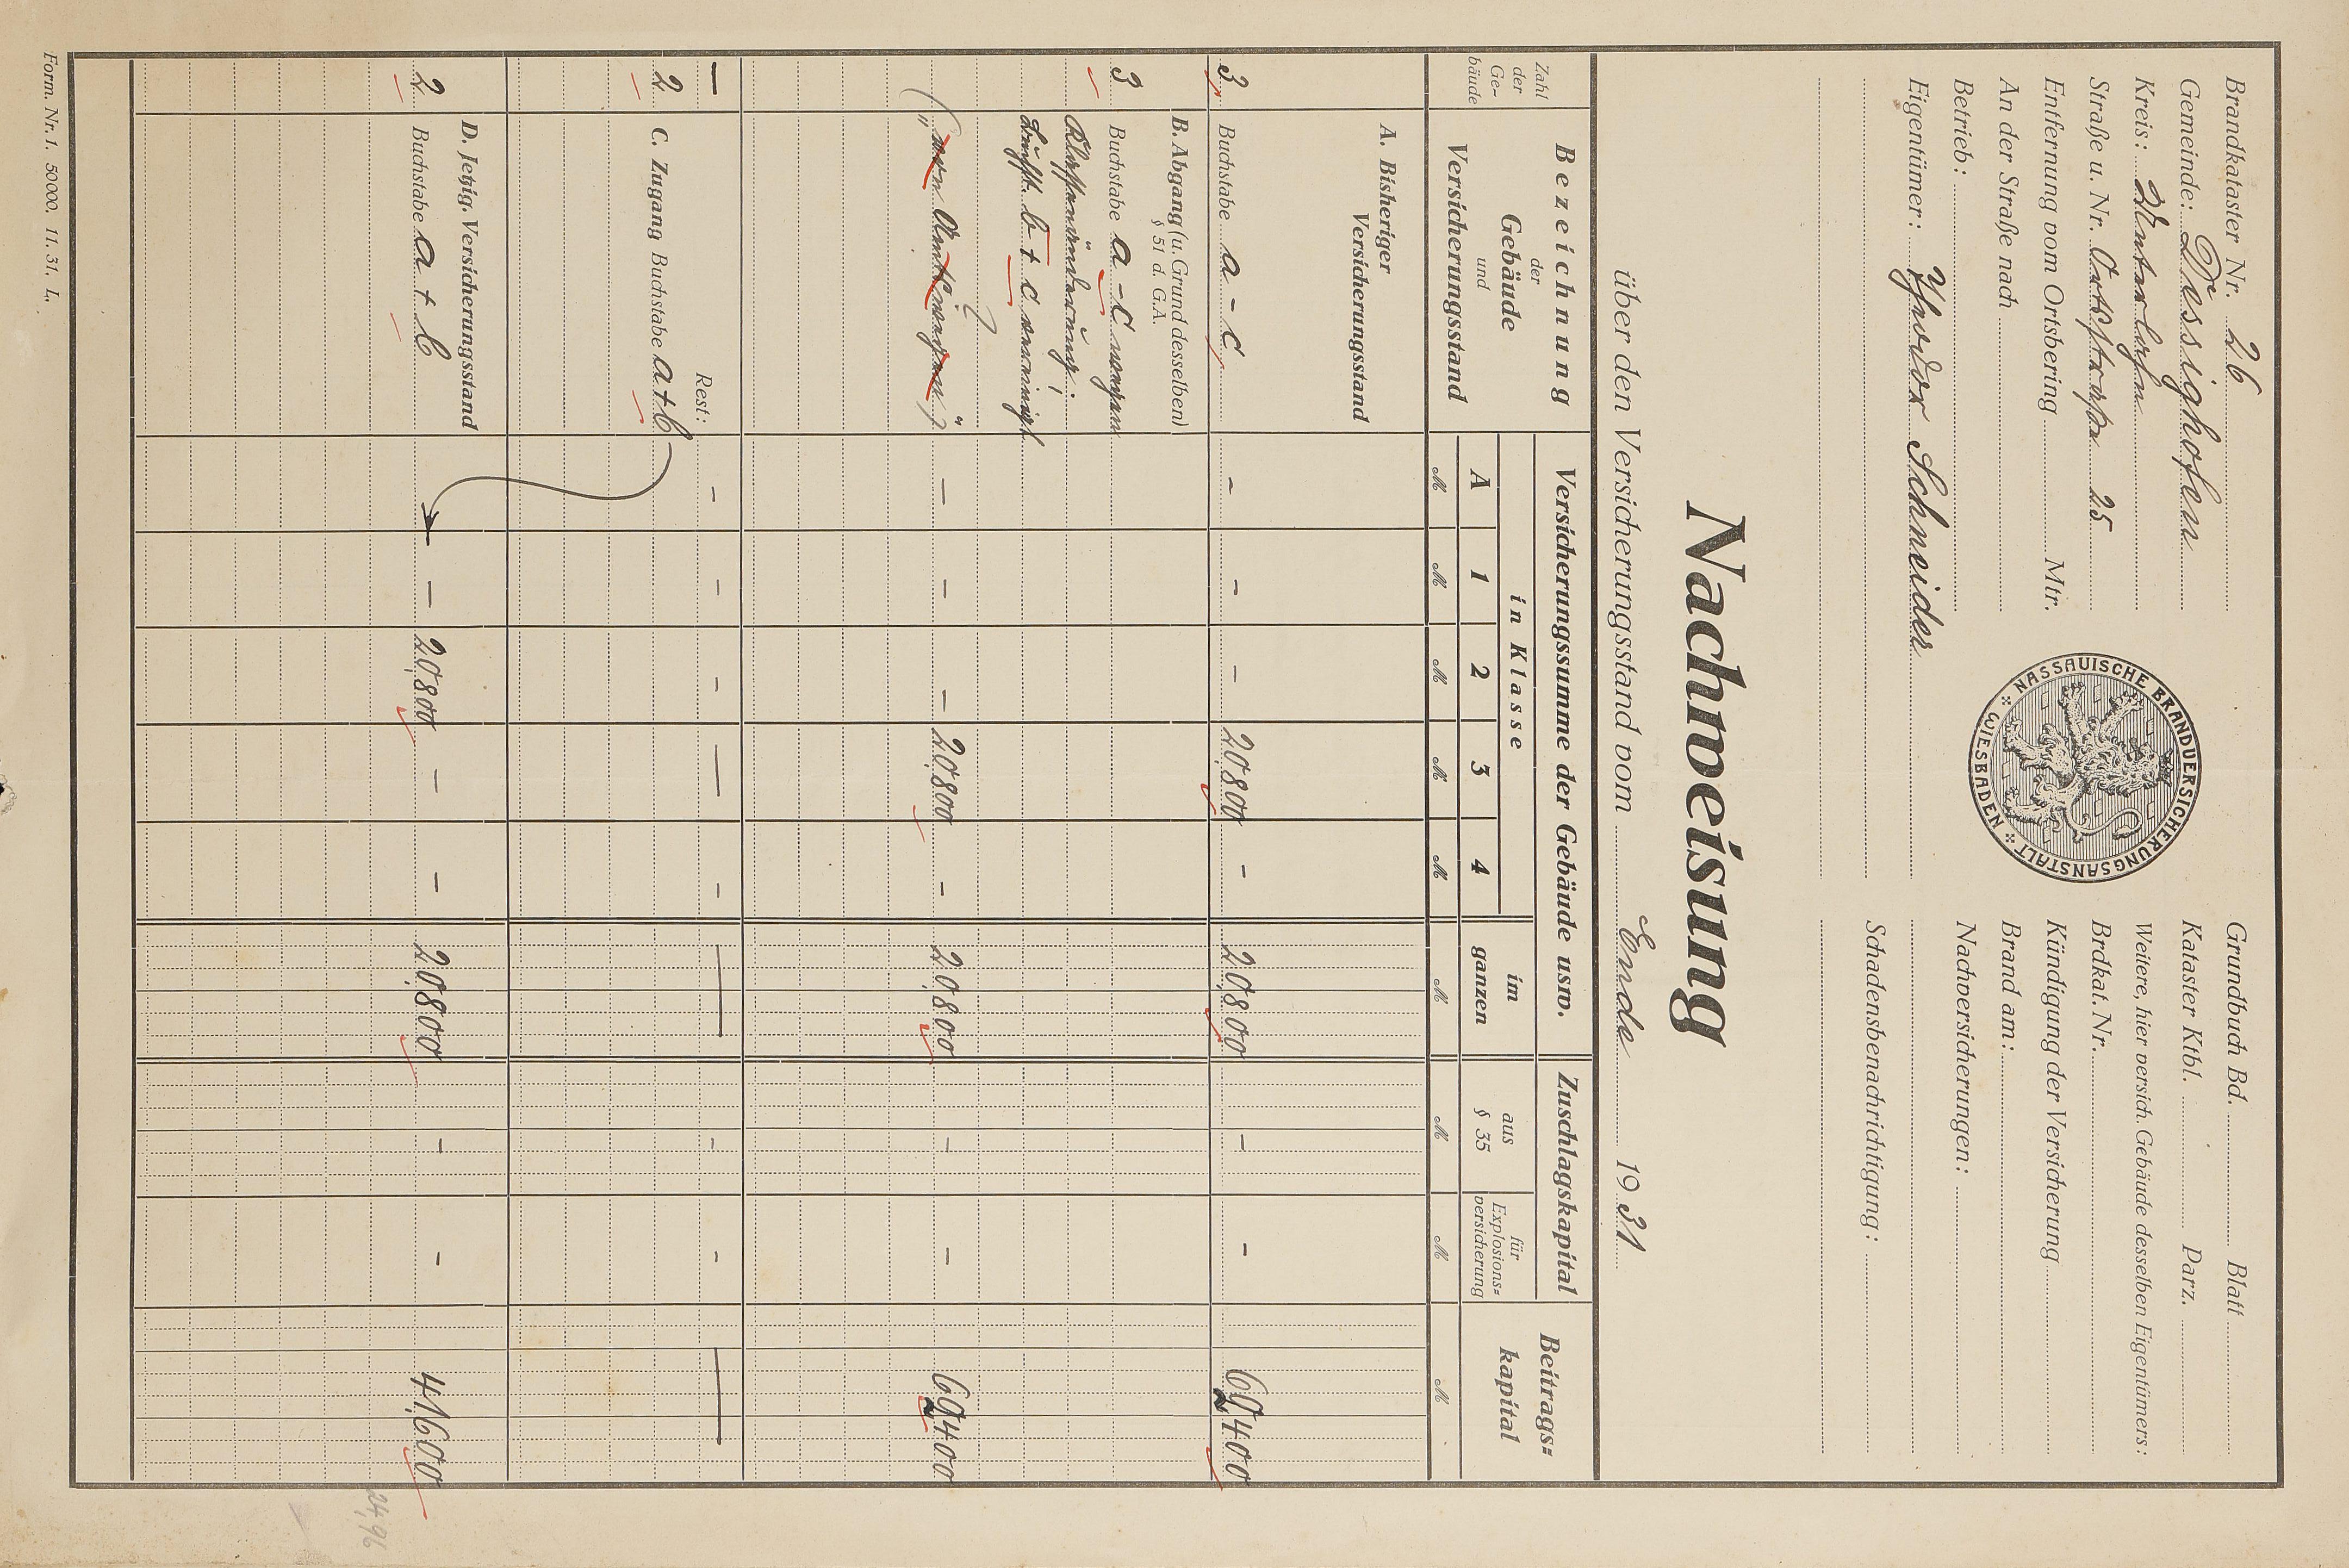 Brandkataster Nr. 26
Gemeinde: Dessighofen
Kreis: Unterlahn
Straße u. Nr. Ortsstraße 25
Entfernung vom Ortsbering Mtr.
An der Straße nach
Betrieb:
Eigentümer: Schneider
NASSAUISCHE BRANDVERSICHERUNGSANSTALT
WIESBADEN
Grundbuch Bd. Blatt
Kataster Ktbl. Parz.
Weitere, hier versich. Gebäude desselben Eigentümers:
Brdkat. Nr.
Kündigung der Versicherung
Brand am:
Nachversicherungen:
Schadensbenachrichtigung:
Nachweisung
über den Versicherungsstand vom Ende 1931
Zahl der Ge-bäude
Bezeichnung
der
Gebäude
und
Versicherungsstand
Versicherungssumme der Gebäude usw.
in Klasse
A 1 2 3 4
im ganzen
Zuschlagskapital
aus § 35
für Explosions=versicherung
Beitrags=kapital
M M M M M M M M M
A. Bisheriger
Versicherungsstand
3 Buchstabe a - c - - - 20800 - 20800 - - 62400
B. Abgang (u. Grund desselben)
§ 51 d. G.A.
3 Buchstabe a - c wegen
Klassenänderung.
b + c vereinigt
(„ von Amtswegen “?) - - - 20800 - 20800 - - 62400
— Rest: - - - — - — - - —
2 C. Zugang Buchstabe a + b
D. Jetzig. Versicherungsstand
2 Buchstabe a + b - - 20800 - - 20800 - - 41600
24,96
Form. Nr. 1. 50000. 11. 31. L.